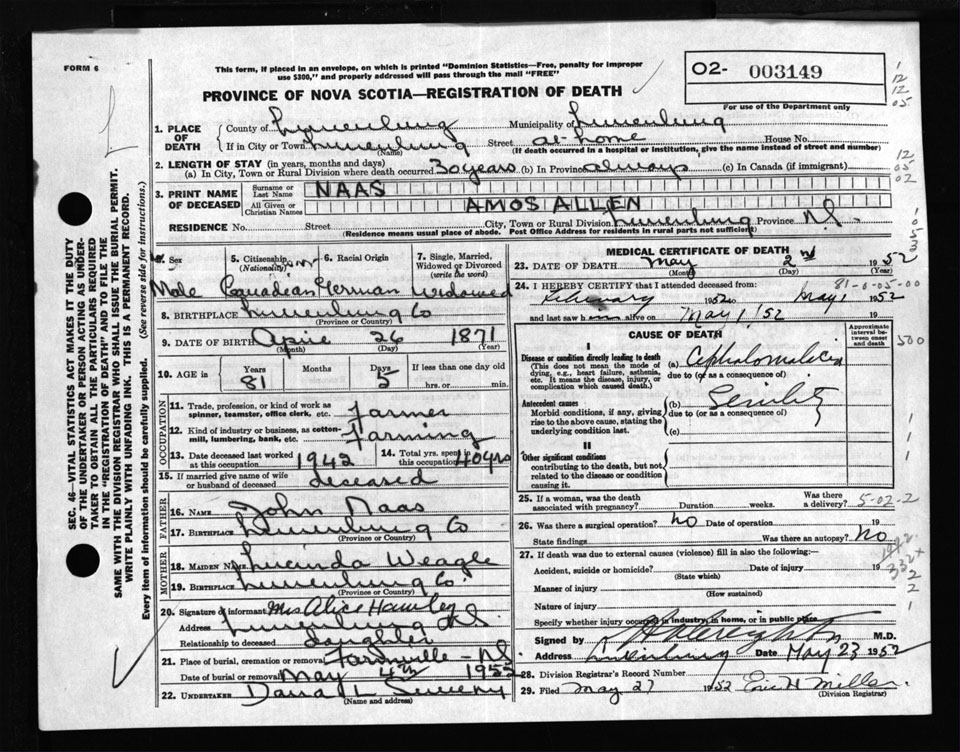 FORM 6
This form, if placed in an envelope, on which is printed "Dominion Statistics—Free, penalty for improper
use $300," and properly addressed will pass through the mail "FREE"
PROVINCE OF NOVA SCOTIA—REGISTRATION OF DEATH
O2- 003149
For use of the Department only
1. PLACE OF DEATH
County of Lunenburg Municipality of Lunenburg
If in City or Town Lunenburg Street at home House No.
(Name) (If death occurred in a hospital or institution, give the name instead of street and number)
2. LENGTH OF STAY (in years, months and days)
(a) In City, Town or Rural Division where death occurred 30 years (b) In Province always (c) In Canada (if immigrant)
3. PRINT NAME OF DECEASED
Surname or Last Name NAAS
All Given or Christian Names AMOS ALLEN
RESIDENCE No. Street City, Town or Rural Division Lunenburg Province N.S.
(Residence means usual place of abode. Post Office Address for residents in rural parts not sufficient)
4. Sex 5. Citizenship (Nationality) 6. Racial Origin 7. Single, Married, Widowed or Divorced (write the word)
Male Canadian German Widowed
8. BIRTHPLACE Lunenburg Co
(Province or Country)
9. DATE OF BIRTH April 26 1871
(Month) (Day) (Year)
10. AGE in Years Months Days If less than one day old
81 5 hrs. or min.
OCCUPATION
11. Trade, profession, or kind of work as spinner, teamster, office clerk, etc. Farmer
12. Kind of industry or business, as cotton-mill, lumbering, bank, etc. Farming
13. Date deceased last worked at this occupation 1942 14. Total yrs. spent in this occupation 40 yrs
15. If married give name of wife or husband of deceased deceased
FATHER
16. NAME John Naas
17. BIRTHPLACE Lunenburg Co
(Province or Country)
MOTHER
18. MAIDEN NAME Lucinda Weagle
19. BIRTHPLACE Lunenburg Co
(Province or Country)
20. Signature of informant Mrs Alice Hawley
Address Lunenburg N.S.
Relationship to deceased daughter
21. Place of burial, cremation or removal Farmville - N.S.
Date of burial or removal May 4th 1952
22. UNDERTAKER Dana L Sweeny
(Name and address)
MEDICAL CERTIFICATE OF DEATH
23. DATE OF DEATH May 2nd 1952
(Month) (Day) (Year)
81-0-05-00
24. I HEREBY CERTIFY that I attended deceased from:
February 1952 to May 1 1952
and last saw h im alive on May 1, '52 19
CAUSE OF DEATH
Approximate interval between onset and death
I
Disease or condition directly leading to death
(This does not mean the mode of dying, e.g., heart failure, asthenia, etc. It means the disease, injury, or complication which caused death.)
(a) Cephalomalacia
due to (or as a consequence of)
Antecedent causes
Morbid conditions, if any, giving rise to the above cause, stating the underlying condition last.
(b) Senility
due to (or as a consequence of)
(c)
II
Other significant conditions
contributing to the death, but not related to the disease or condition causing it.
25. If a woman, was the death associated with pregnancy? Duration weeks. Was there a delivery? 5-02-2
26. Was there a surgical operation? No Date of operation 19
State findings Was there an autopsy? No
27. If death was due to external causes (violence) fill in also the following:—
Accident, suicide or homicide? Date of injury 19
(State which)
Manner of injury
(How sustained)
Nature of injury
Specify whether injury occurred in industry, in home, or in public place
Signed by M.D.
Address Lunenburg Date May 23 1952
28. Division Registrar's Record Number
29. Filed May 27 1952 Eric H Miller
(Division Registrar)
SEC. 46—VITAL STATISTICS ACT MAKES IT THE DUTY
OF THE UNDERTAKER OR PERSON ACTING AS UNDER-
TAKER TO OBTAIN ALL THE PARTICULARS REQUIRED
IN THE "REGISTRATION OF DEATH" AND TO FILE THE
SAME WITH THE DIVISION REGISTRAR WHO SHALL ISSUE THE BURIAL PERMIT.
WRITE PLAINLY WITH UNFADING INK. THIS IS A PERMANENT RECORD.
Every item of information should be carefully supplied. (See reverse side for instructions.)